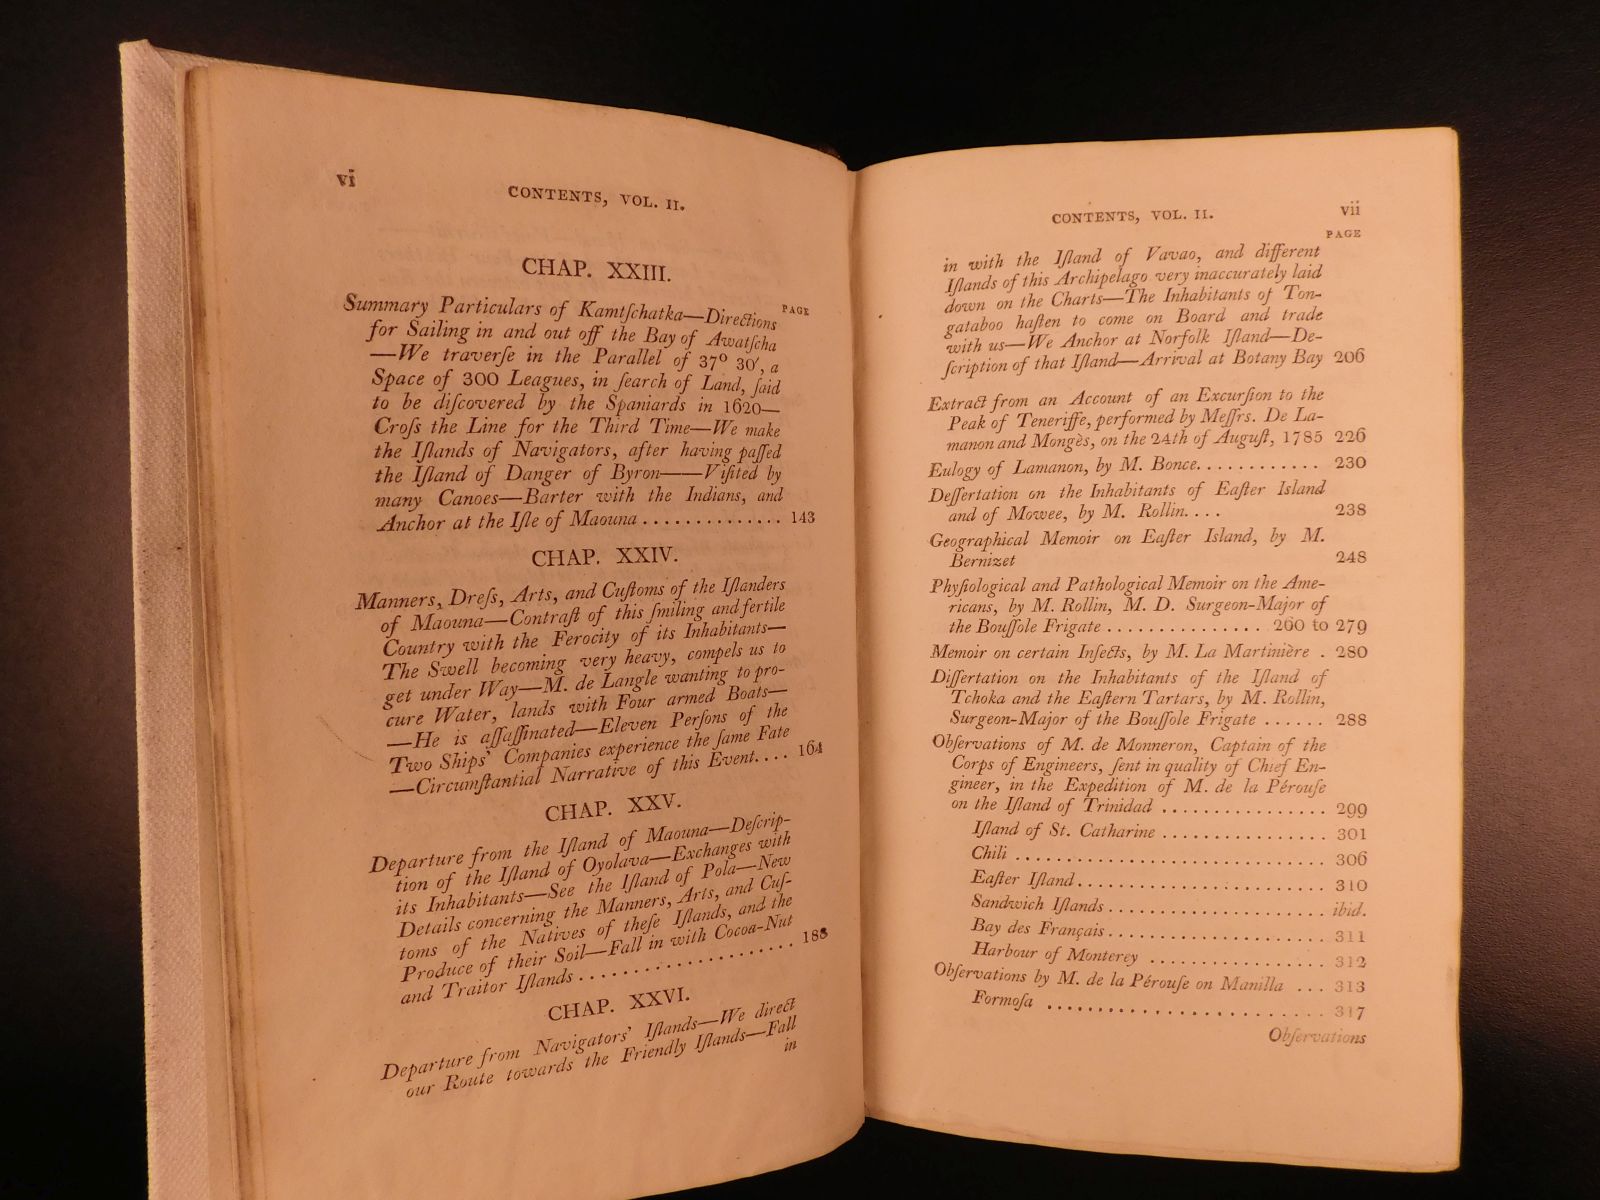 vi
CONTENTS, VOL. II.
CHAP. XXIII.
PAGE
Summary Particulars of Kamtſchatka—Directions
for Sailing in and out off the Bay of Awatſcha
—We traverſe in the Parallel of 37° 30′, a
Space of 300 Leagues, in ſearch of Land, ſaid
to be diſcovered by the Spaniards in 1620—
Croſs the Line for the Third Time—We make
the Iſlands of Navigators, after having paſſed
the Iſland of Danger of Byron——Viſited by
many Canoes—Barter with the Indians, and
Anchor at the Iſle of Maouna .............. 143
CHAP. XXIV.
Manners, Dreſs, Arts, and Cuſtoms of the Iſlanders
of Maouna—Contraſt of this ſmiling and fertile
Country with the Ferocity of its Inhabitants—
The Swell becoming very heavy, compels us to
get under Way—M. de Langle wanting to pro-
cure Water, lands with Four armed Boats—
—He is aſſaſſinated—Eleven Perſons of the
Two Ships' Companies experience the ſame Fate
—Circumſtantial Narrative of this Event.... 164
CHAP. XXV.
Departure from the Iſland of Maouna—Deſcrip-
tion of the Iſland of Oyolava—Exchanges with
its Inhabitants—See the Iſland of Pola—New
Details concerning the Manners, Arts, and Cuſ-
toms of the Natives of theſe Iſlands, and the
Produce of their Soil—Fall in with Cocoa-Nut
and Traitor Iſlands .................... 188
CHAP. XXVI.
Departure from Navigators' Iſlands—We direct
our Route towards the Friendly Iſlands—Fall
in
CONTENTS, VOL. II.
vii
PAGE
in with the Iſland of Vavao, and different
Iſlands of this Archipelago very inaccurately laid
down on the Charts—The Inhabitants of Ton-
gataboo haſten to come on Board and trade
with us—We Anchor at Norfolk Iſland—De-
ſcription of that Iſland—Arrival at Botany Bay 206
Extract from an Account of an Excurſion to the
Peak of Teneriffe, performed by Meſſrs. De La-
manon and Mongès, on the 24th of Auguſt, 1785 226
Eulogy of Lamanon, by M. Bonce............ 230
Deſſertation on the Inhabitants of Eaſter Island
and of Mowee, by M. Rollin.... 238
Geographical Memoir on Eaſter Island, by M.
Bernizet 248
Phyſiological and Pathological Memoir on the Ame-
ricans, by M. Rollin, M. D. Surgeon-Major of
the Bouſſole Frigate ............... 260 to 279
Memoir on certain Inſects, by M. La Martinière . 280
Diſſertation on the Inhabitants of the Iſland of
Tchoka and the Eaſtern Tartars, by M. Rollin,
Surgeon-Major of the Bouſſole Frigate ...... 288
Obſervations of M. de Monneron, Captain of the
Corps of Engineers, ſent in quality of Chief En-
gineer, in the Expedition of M. de la Pérouſe
on the Iſland of Trinidad ................ 299
Iſland of St. Catharine ................ 301
Chili .............................. 306
Eaſter Iſland........................ 310
Sandwich Iſlands...................... ibid.
Bay des Français...................... 311
Harbour of Monterey ................. 312
Obſervations by M. de la Pérouſe on Manilla ... 313
Formoſa .......................... 317
Obſervations